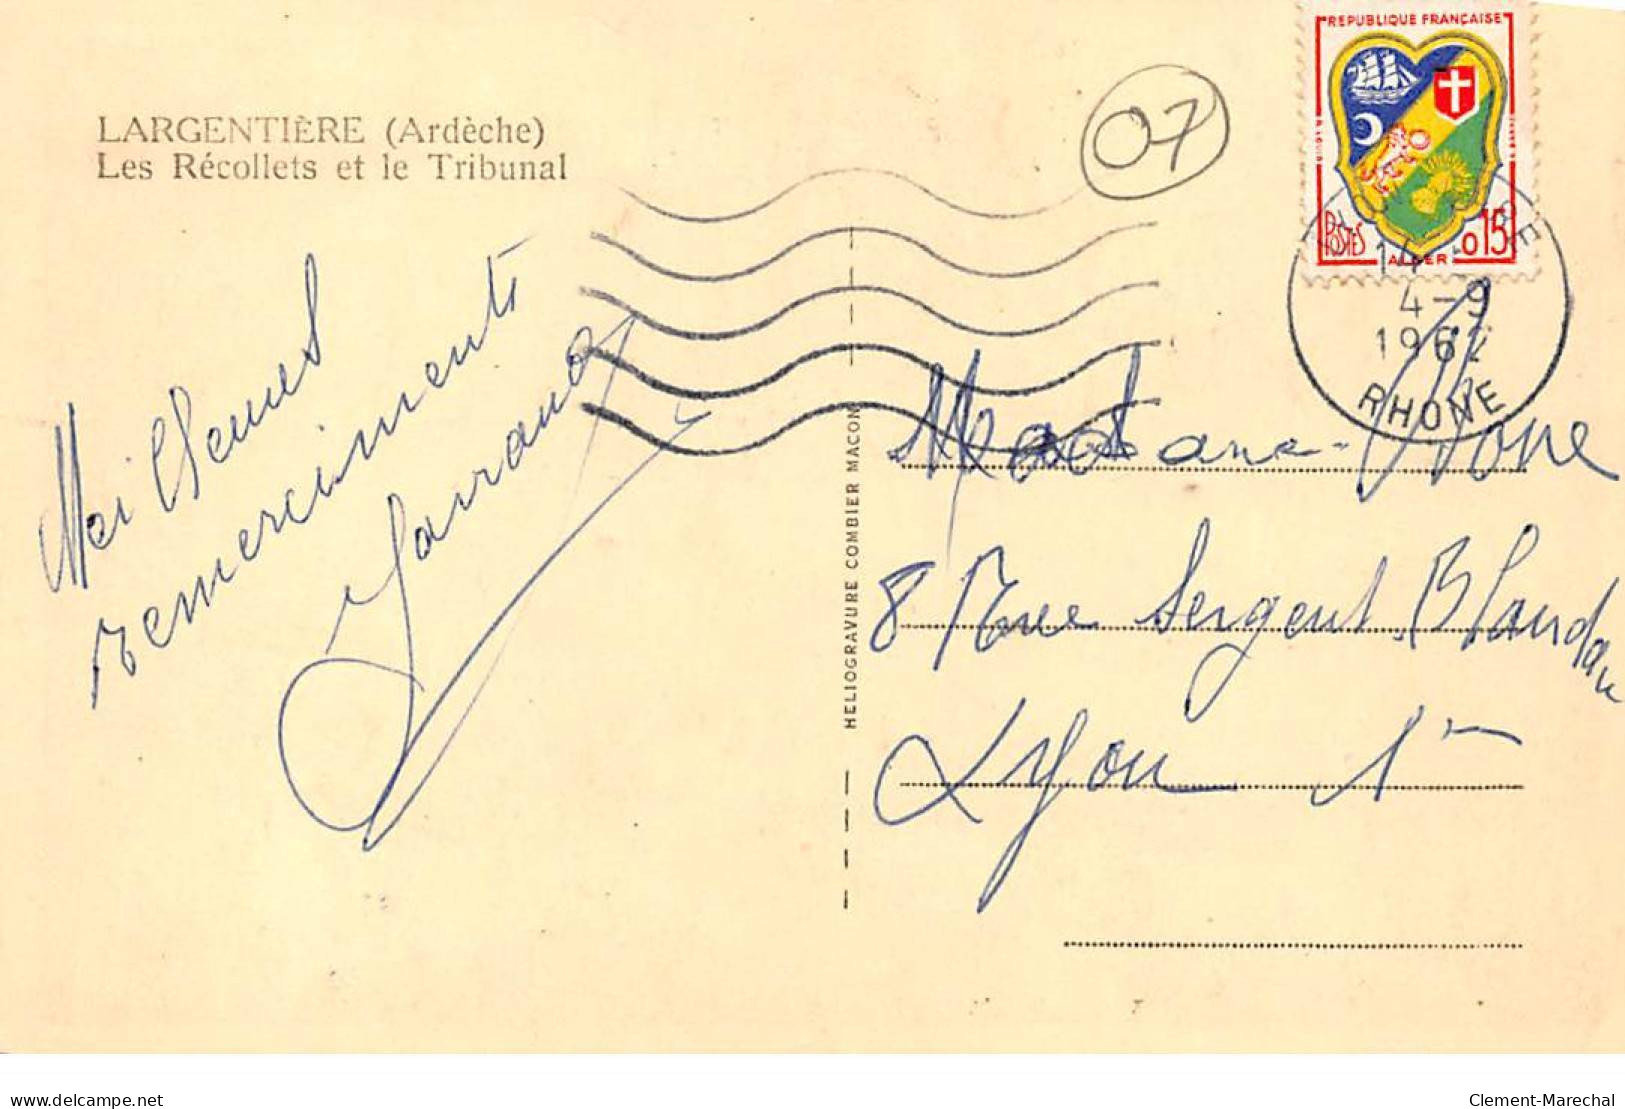 LARGENTIÈRE (Ardèche)
Les Récollets et le Tribunal
07
REPUBLIQUE FRANÇAISE
POSTES
0,15
ALGER
4-9
1962
RHONE
Meilleures
remerciments
HELIOGRAVURE COMBIER MACON
Madame
8 Rue Sergent Blandau
Lyon 1er
delcampe.net
Clement-Marechal